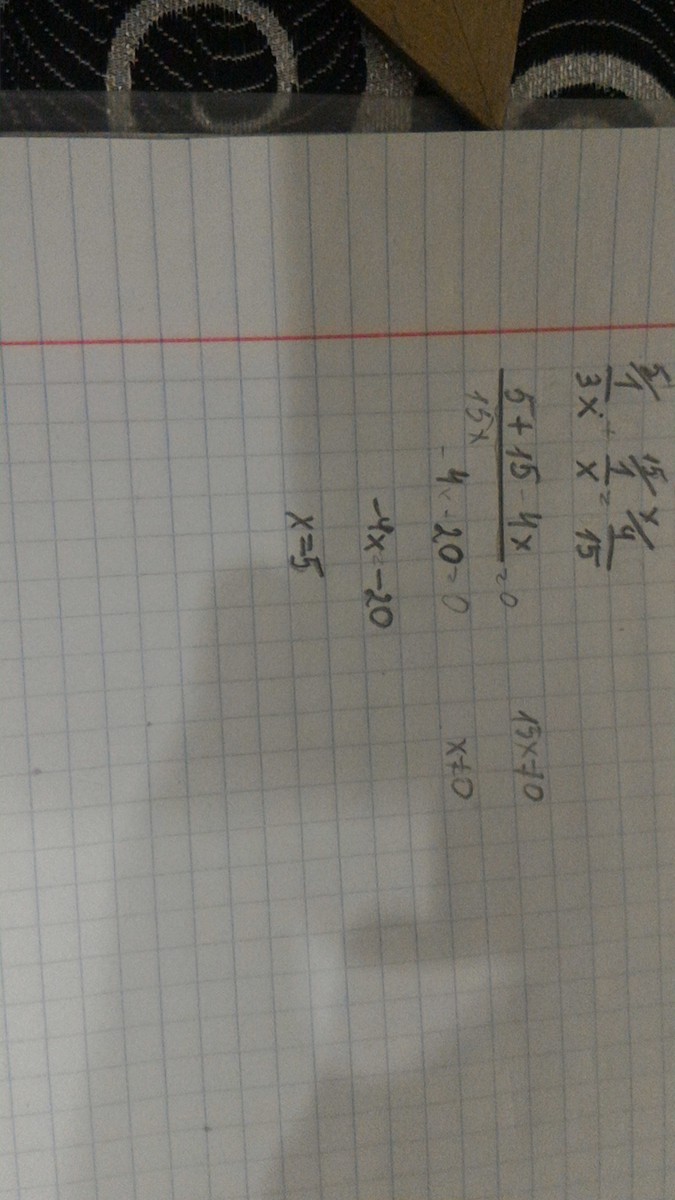 5/1/3x + 15/1/x = x/4/15
5+15-4x/15x =0 15x≠0
-4x-20=0 x≠0
-4x=-20
x=5